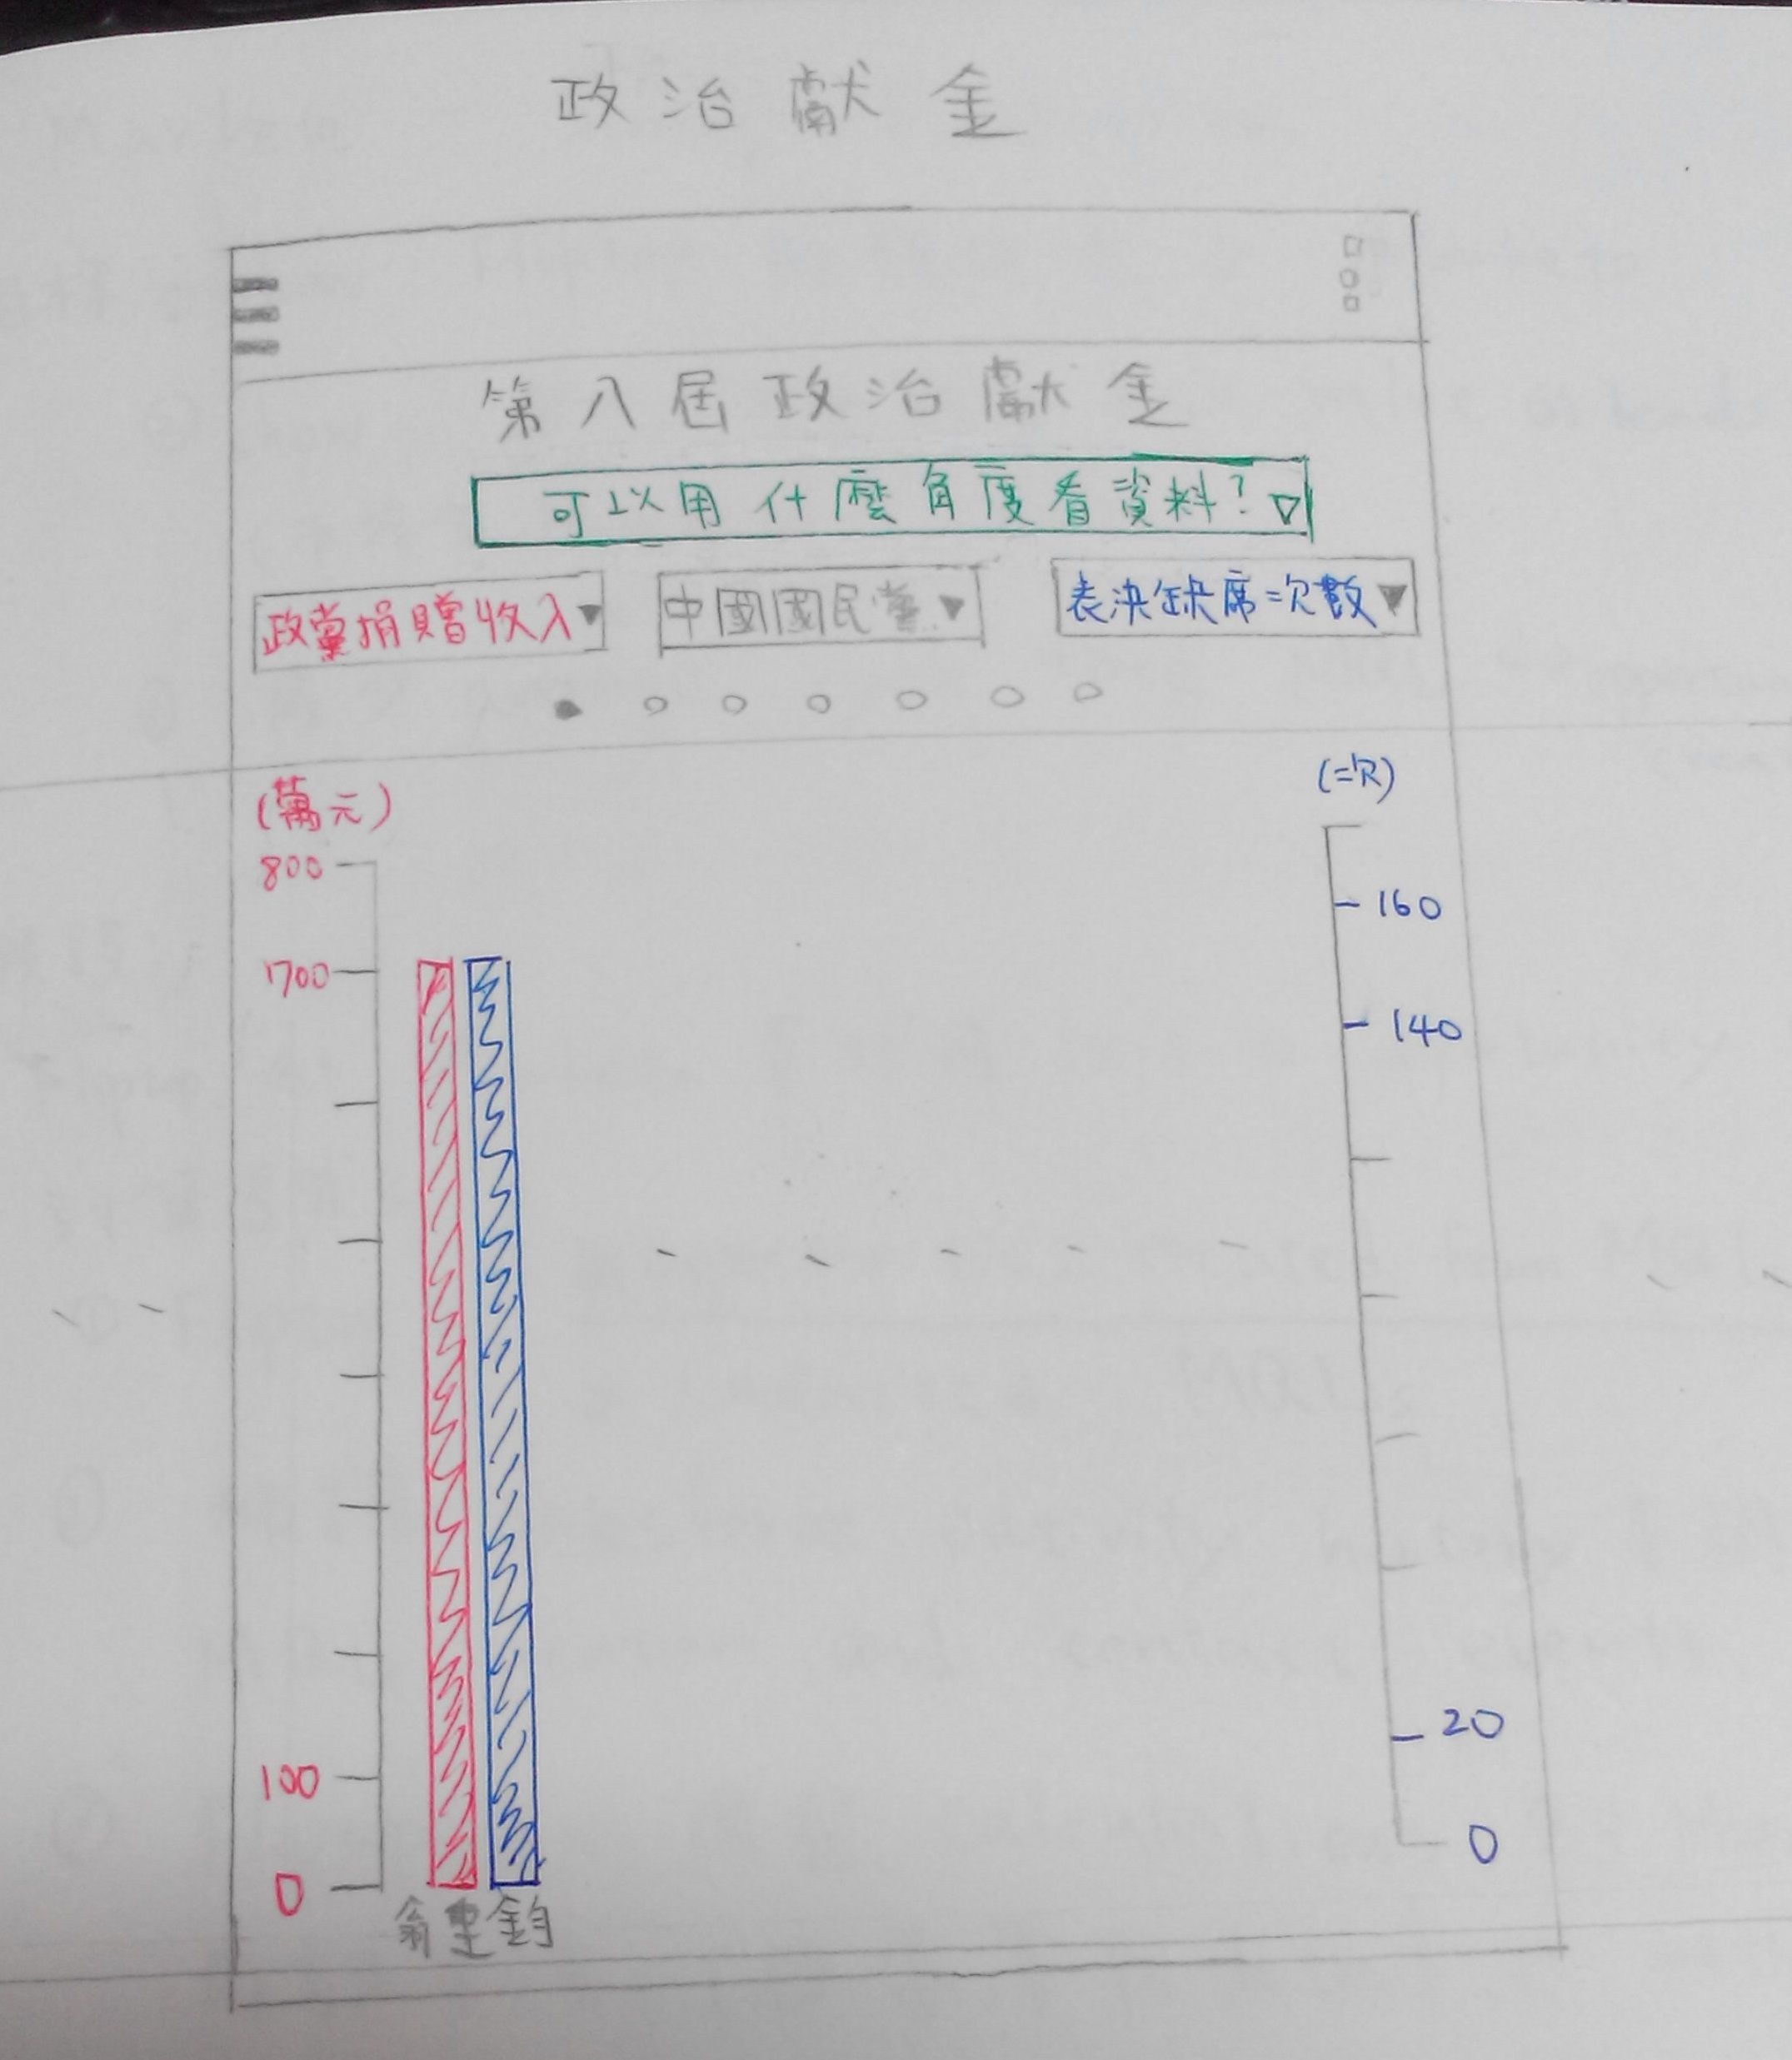 政治獻金
第八屆政治獻金
可以用什麼角度看資料?
政黨捐贈收入
中國國民黨
表決缺席次數
(萬元)
(次)
800
160
700
140
100
20
0
0
翁重鈞